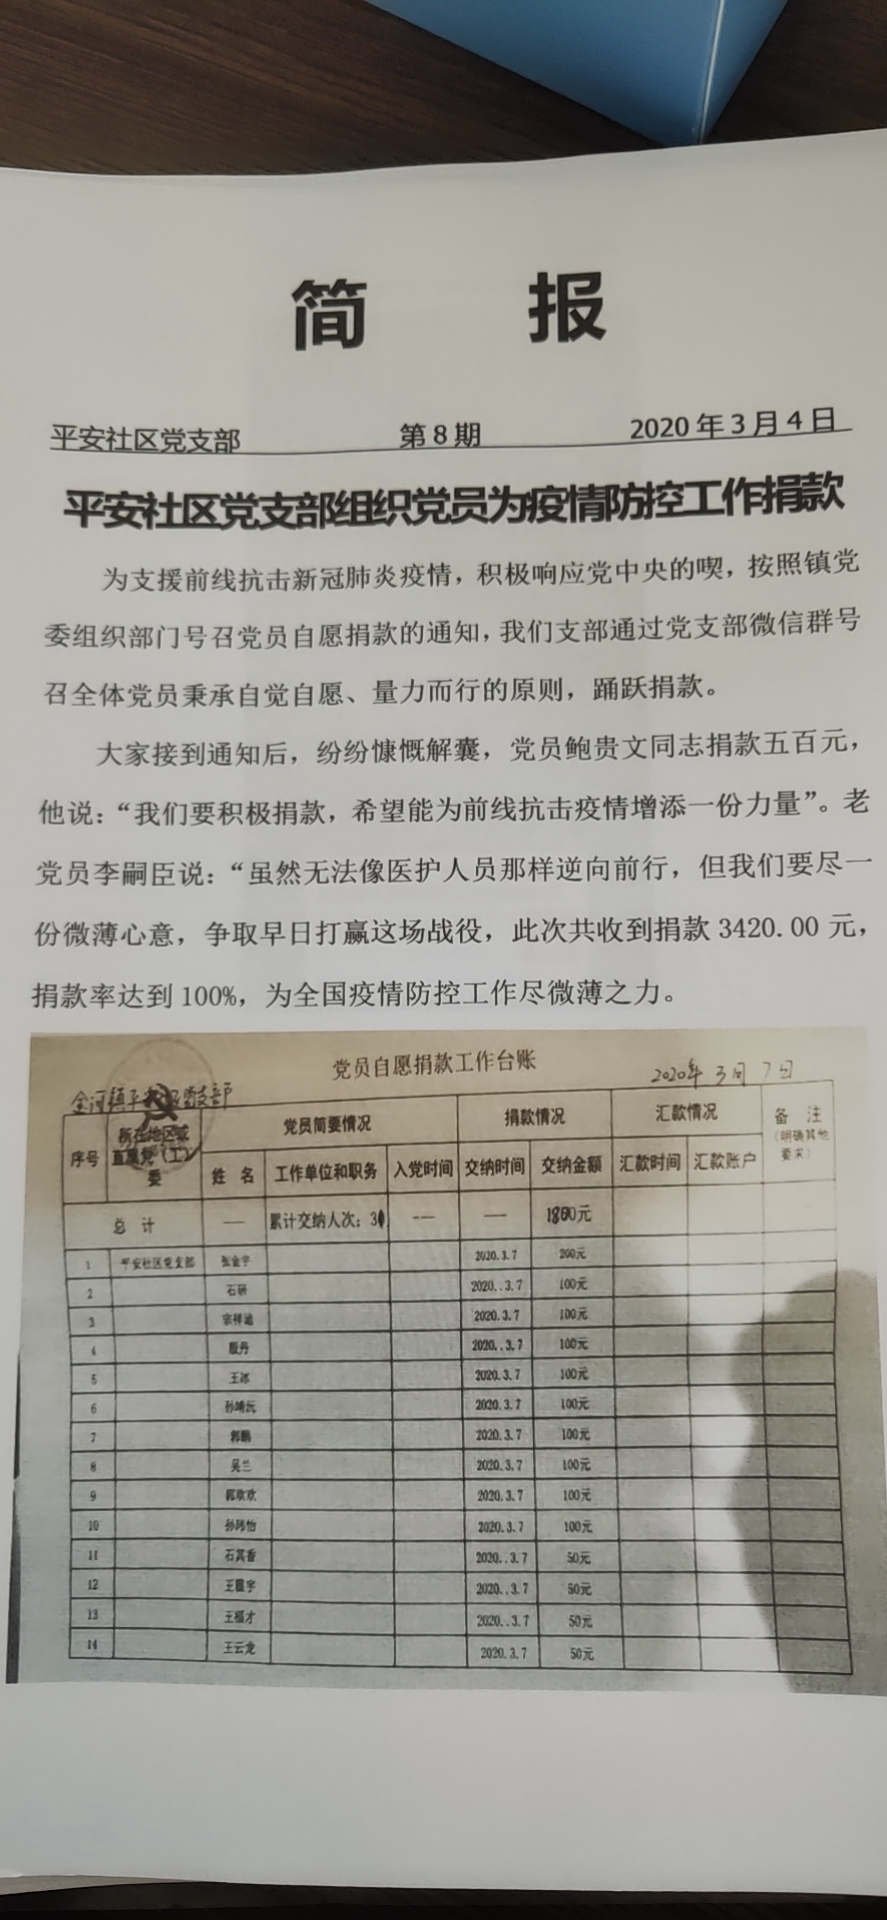 简 报
平安社区党支部 第8期 2020年3月4日
平安社区党支部组织党员为疫情防控工作捐款
为支援前线抗击新冠肺炎疫情，积极响应党中央的喫，按照镇党
委组织部门号召党员自愿捐款的通知，我们支部通过党支部微信群号
召全体党员秉承自觉自愿、量力而行的原则，踊跃捐款。
大家接到通知后，纷纷慷慨解囊，党员鲍贵文同志捐款五百元，
他说：“我们要积极捐款，希望能为前线抗击疫情增添一份力量”。老
党员李嗣臣说：“虽然无法像医护人员那样逆向前行，但我们要尽一
份微薄心意，争取早日打赢这场战役，此次共收到捐款 3420.00 元，
捐款率达到 100%，为全国疫情防控工作尽微薄之力。
党员自愿捐款工作台账
金河镇平安社区党支部 2020年 3月 7日
序号 所在地区或直属党（工）委 党员简要情况 捐款情况 汇款情况 备 注（明确其他要求）
姓 名 工作单位和职务 入党时间 交纳时间 交纳金额 汇款时间 汇款账户
总 计 — 累计交纳人次： — — 元
1 平安社区党支部 张金宇 2020.3.7 200元
2 石研 2020..3.7 100元
3 2020.3.7 100元
4 殷丹 2020..3.7 100元
5 王冰 2020.3.7 100元
6 2020.3.7 100元
7 郭鹏 2020.3.7 100元
8 吴兰 2020.3.7 100元
9 2020.3.7 100元
10 2020.3.7 100元
11 2020..3.7 50元
12 2020..3.7 50元
13 王福才 2020..3.7 50元
14 王云龙 2020.3.7 50元